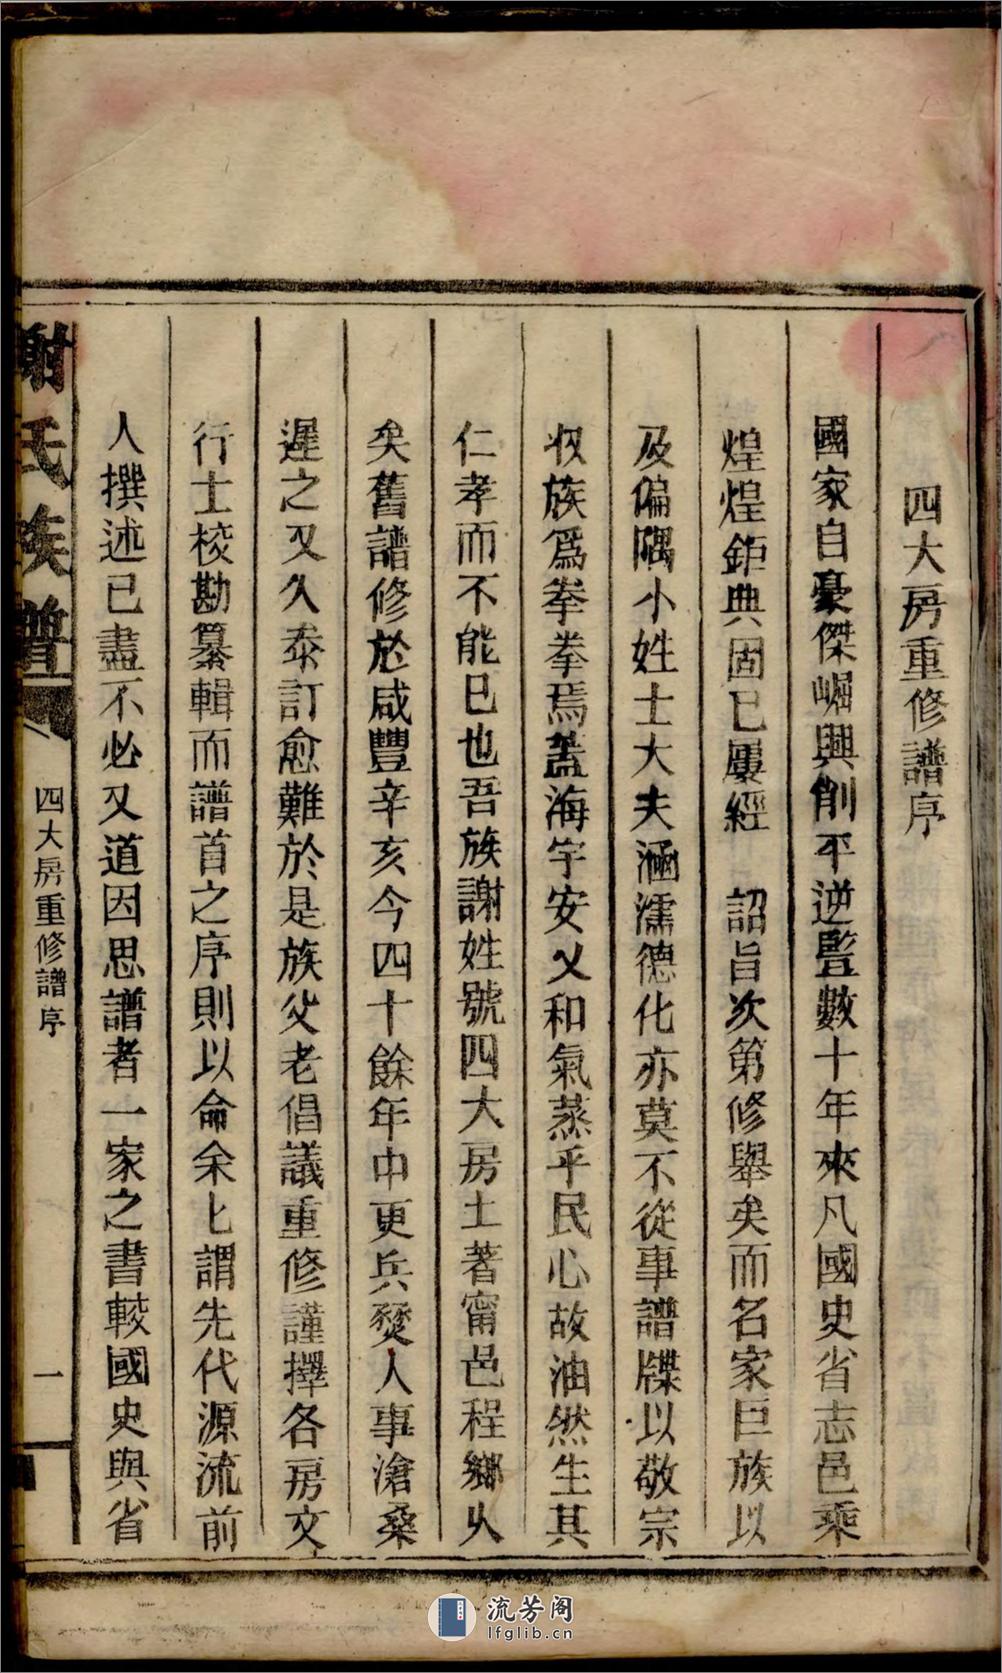 四大房重修譜序
國家自豪傑崛興削平逆豎數十年來凡國史省志邑乘
煌煌鉅典固已屢經 詔旨次第修舉矣而名家巨族以
及偏隅小姓士大夫涵濡德化亦莫不從事譜牒以敬宗
收族爲拳拳焉蓋海宇安乂和氣蒸乎民心故油然生其
仁孝而不能已也吾族謝姓號四大房土著甯邑程鄉久
矣舊譜修於咸豐辛亥今四十餘年中更兵燹人事滄桑
遲之又久叅訂愈難於是族父老倡議重修謹擇各房文
行士校勘纂輯而譜首之序則以命余匕謂先代源流前
人撰述已盡不必又道因思譜者一家之書較國史與省
謝氏族譜
四大房重修譜序
一
流芳阁
lfglib.cn